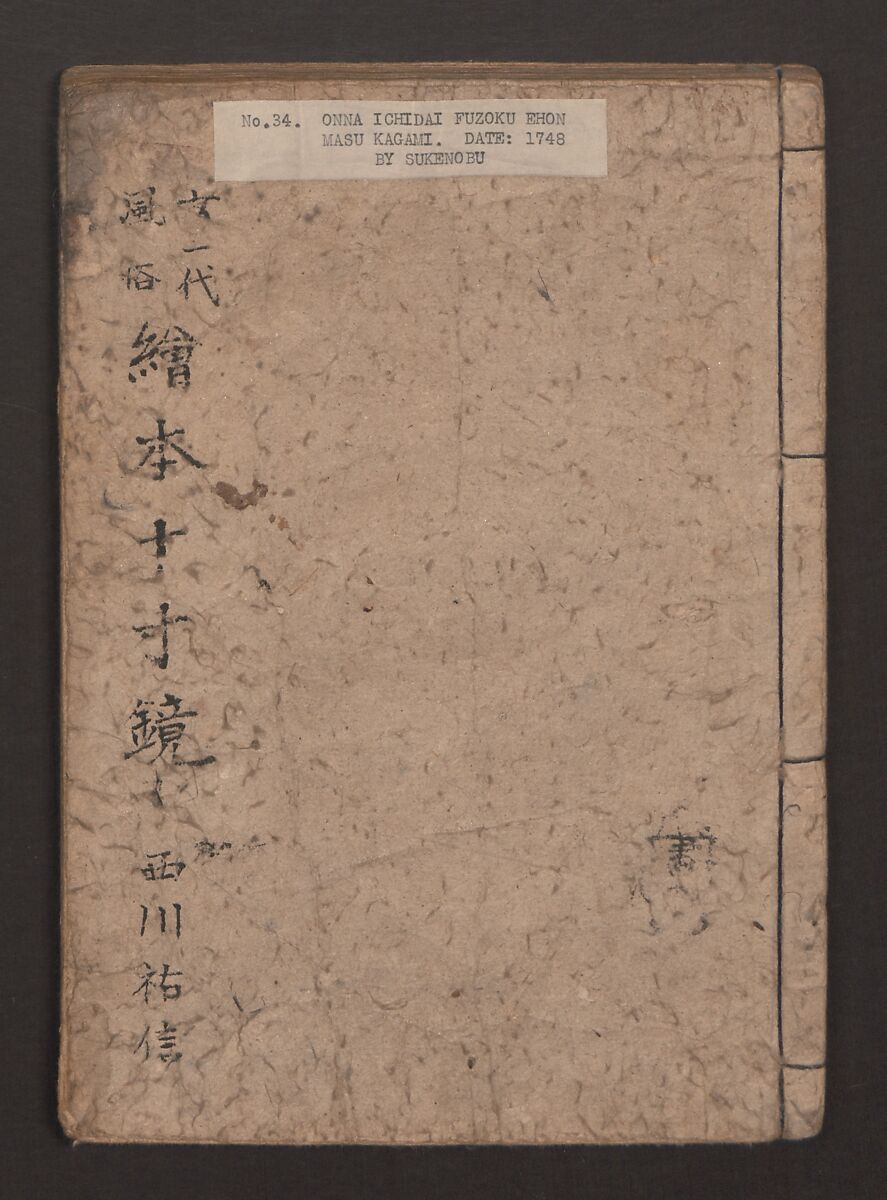 No.34. ONNA ICHIDAI FUZOKU EHON
MASU KAGAMI. DATE: 1748
BY SUKENOBU
女一代
風俗
繪本十寸鏡
西川祐信